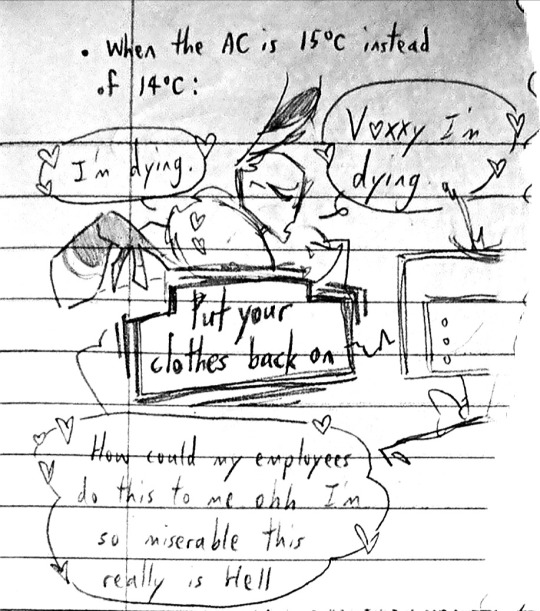 • When the AC is 15°C instead
of 14°C:
I'm dying.
V♥xxy I'm
dying
Put your
clothes back on
How could my employees
do this to me ohh I'm
so miserable this
really is Hell